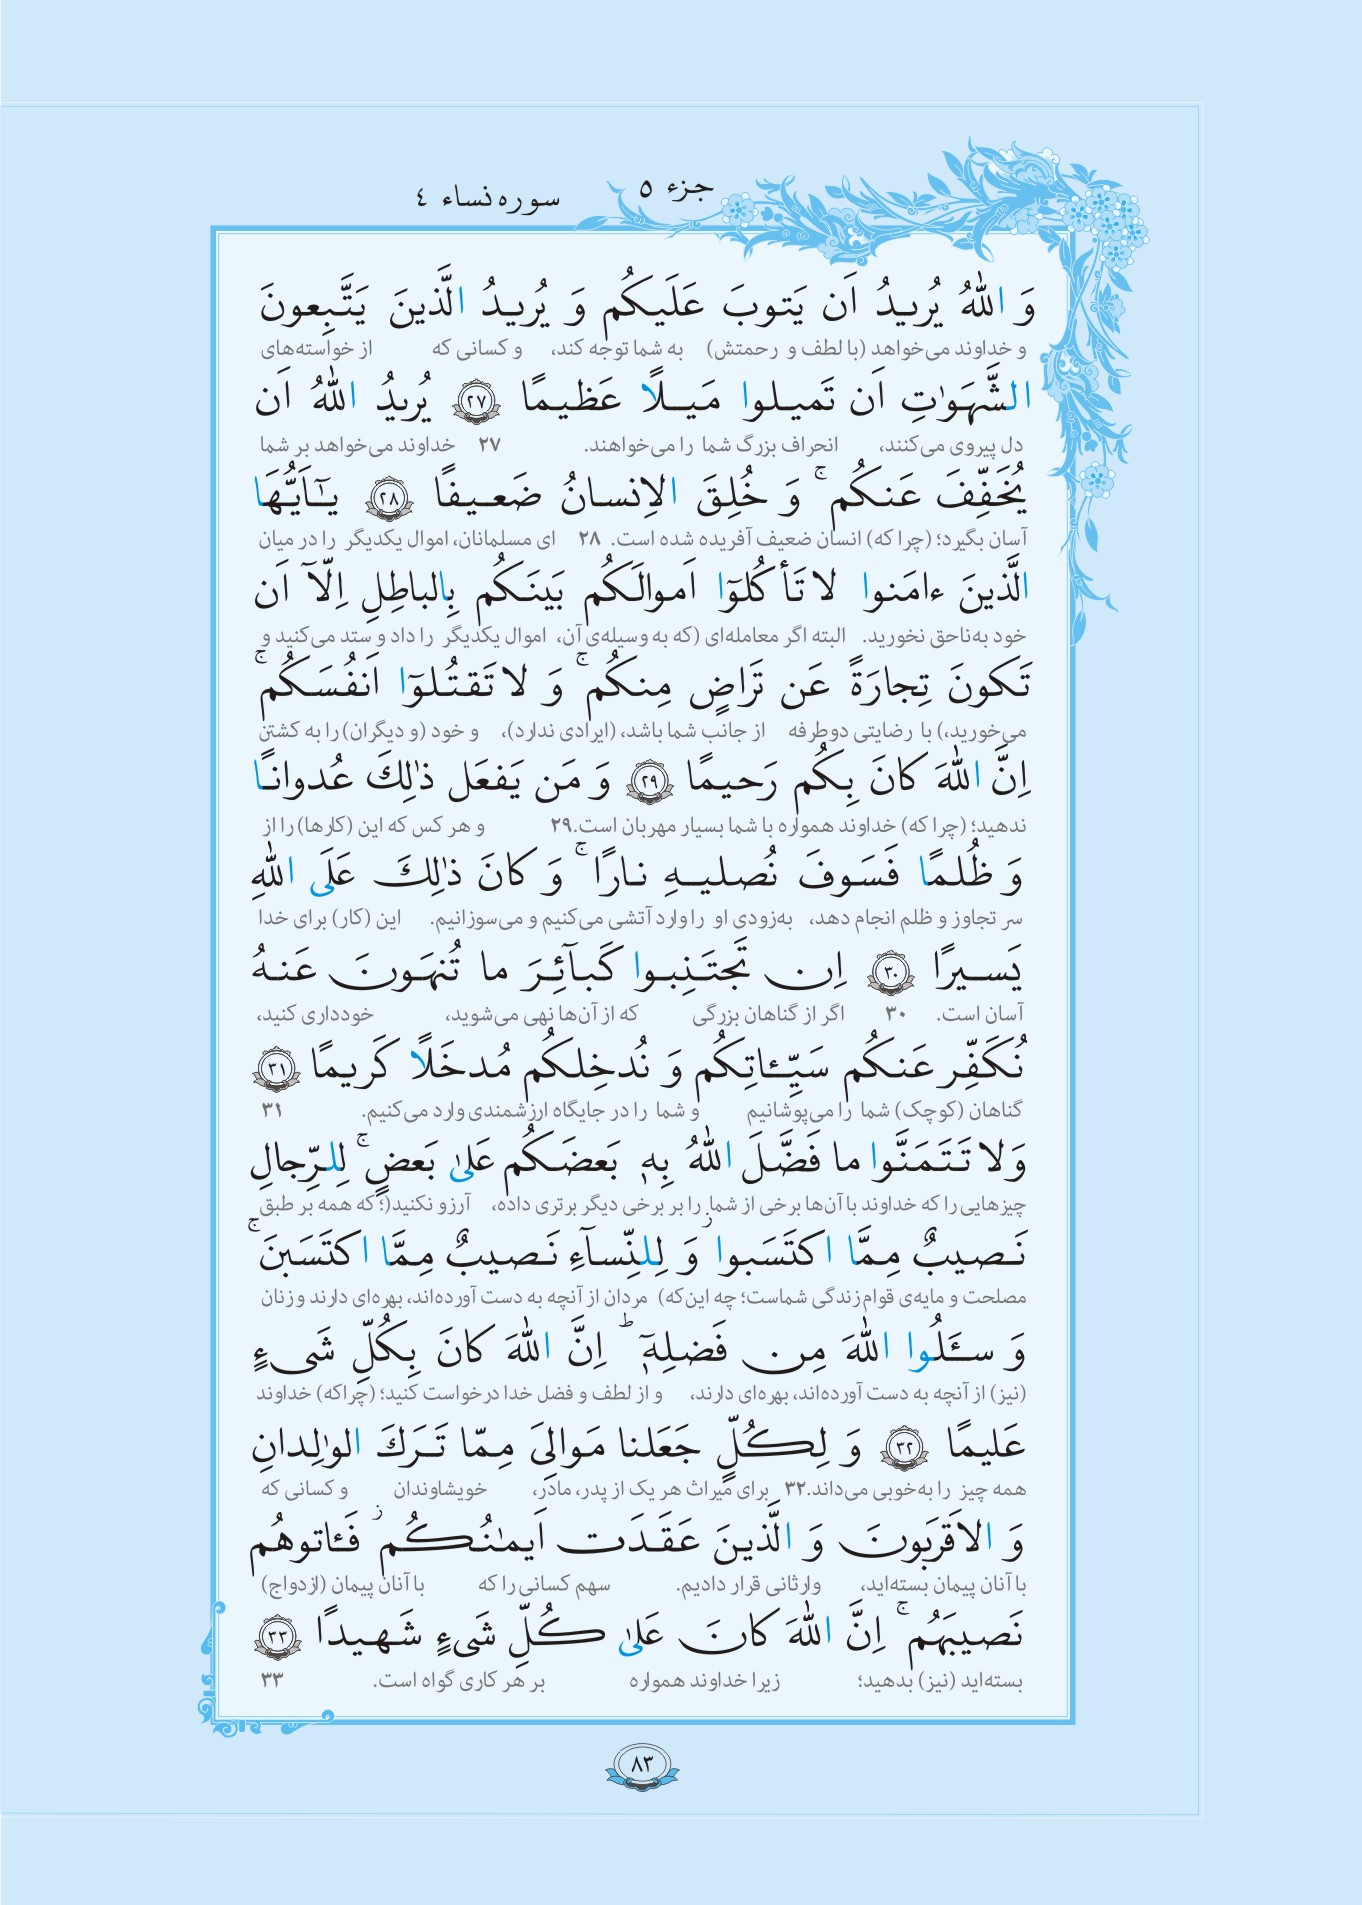 جزء ٥
سوره نساء ٤
وَ اللّٰهُ يُريدُ اَن يَتوبَ عَلَيكُم وَ يُريدُ الَّذينَ يَتَّبِعونَ
و خداوند می‌خواهد (با لطف و رحمتش) به شما توجه کند، و کسانی که از خواسته‌های
الشَّهَوٰتِ اَن تَميلوا مَيلًا عَظيمًا ٢٧ يُريدُ اللّٰهُ اَن
دل پیروی می‌کنند، انحراف بزرگ شما را می‌خواهند. ۲۷ خداوند می‌خواهد بر شما
يُخَفِّفَ عَنكُم ۚ وَ خُلِقَ الاِنسانُ ضَعيفًا ٢٨ يـٰٓاَيُّهَا
آسان بگیرد؛ (چرا که) انسان ضعیف آفریده شده است. ۲۸ ای مسلمانان، اموال یکدیگر را در میان
الَّذينَ ءامَنوا لا تَأكُلوٓا اَموالَكُم بَينَكُم بِالباطِلِ اِلّآ اَن
خود به‌ناحق نخورید. البته اگر معامله‌ای (که به وسیله‌ی آن، اموال یکدیگر را داد و ستد می‌کنید و
تَكونَ تِجارَةً عَن تَراضٍ مِنكُم ۚ وَ لا تَقتُلوٓا اَنفُسَكُم ۚ
می‌خورید،) با رضایتی دوطرفه از جانب شما باشد، (ایرادی ندارد)، و خود (و دیگران) را به کشتن
اِنَّ اللّٰهَ كانَ بِكُم رَحيمًا ٢٩ وَ مَن يَفعَل ذٰلِكَ عُدوانًا
ندهید؛ (چرا که) خداوند همواره با شما بسیار مهربان است.۲۹ و هر کس که این (کارها) را از
وَ ظُلمًا فَسَوفَ نُصليهِ نارًا ۚ وَ كانَ ذٰلِكَ عَلَى اللّٰهِ
سر تجاوز و ظلم انجام دهد، به‌زودی او را وارد آتشی می‌کنیم و می‌سوزانیم. این (کار) برای خدا
يَسيرًا ٣٠ اِن تَجتَنِبوا كَبآئِرَ ما تُنهَونَ عَنهُ
آسان است. ۳۰ اگر از گناهان بزرگی که از آن‌ها نهی می‌شوید، خودداری کنید،
نُكَفِّر عَنكُم سَيِّـٔاتِكُم وَ نُدخِلكُم مُدخَلًا كَريمًا ٣١
گناهان (کوچک) شما را می‌پوشانیم و شما را در جایگاه ارزشمندی وارد می‌کنیم. ۳۱
وَلا تَتَمَنَّوا ما فَضَّلَ اللّٰهُ بِهٖ بَعضَكُم عَلىٰ بَعضٍ ۚ لِلرِّجالِ
چیزهایی را که خداوند با آن‌ها برخی از شما را بر برخی دیگر برتری داده، آرزو نکنید(؛ که همه بر طبق
نَصيبٌ مِمَّا اكتَسَبوا ز وَ لِلنِّسآءِ نَصيبٌ مِمَّا اكتَسَبنَ ۚ
مصلحت و مایه‌ی قوام زندگی شماست؛ چه این‌که) مردان از آنچه به دست آورده‌اند، بهره‌ای دارند و زنان
وَ سـَٔلُوا اللّٰهَ مِن فَضلِهٖٓ ط اِنَّ اللّٰهَ كانَ بِكُلِّ شَىءٍ
(نیز) از آنچه به دست آورده‌اند، بهره‌ای دارند، و از لطف و فضل خدا درخواست کنید؛ (چراکه) خداوند
عَليمًا ٣٢ وَ لِكُلٍّ جَعَلنا مَوالِىَ مِمّا تَرَكَ الوٰلِدانِ
همه چیز را به‌خوبی می‌داند.۳۲ برای میراث هر یک از پدر، مادر، خویشاوندان و کسانی که
وَ الاَقرَبونَ وَ الَّذينَ عَقَدَت اَيمٰنُكُم ز فَـٔاتوهُم
با آنان پیمان بسته‌اید، وارثانی قرار دادیم. سهم کسانی را که با آنان پیمان (ازدواج)
نَصيبَهُم ۚ اِنَّ اللّٰهَ كانَ عَلىٰ كُلِّ شَىءٍ شَهيدًا ٣٣
بسته‌اید (نیز) بدهید؛ زیرا خداوند همواره بر هر کاری گواه است. ۳۳
٨٣